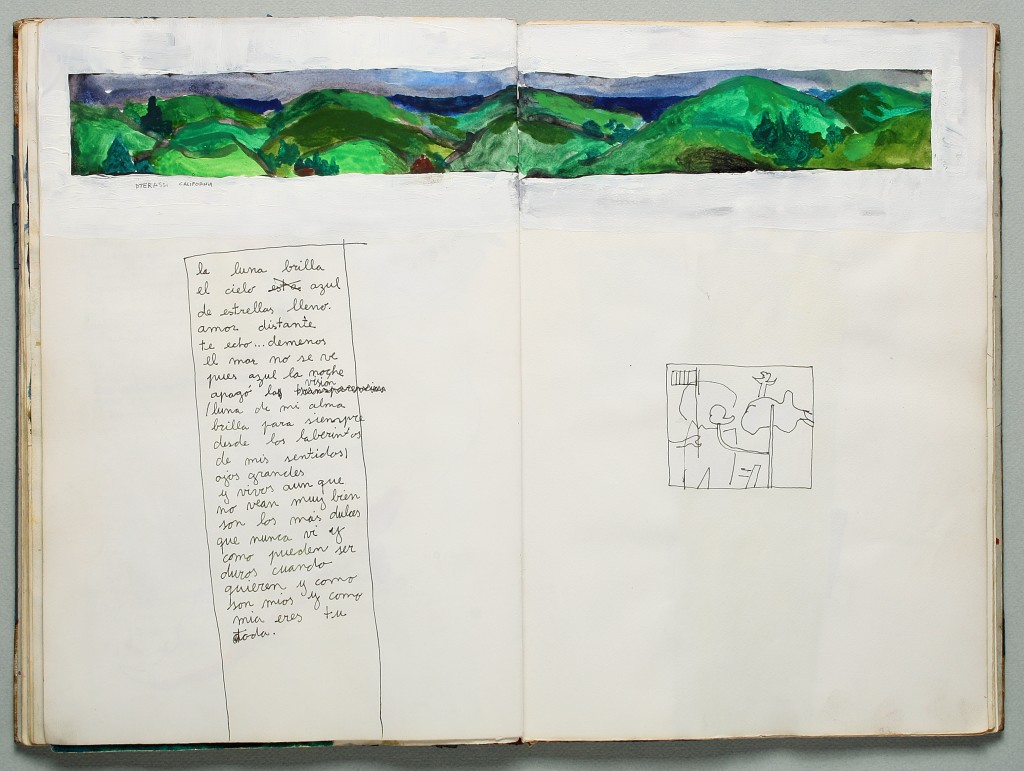 la luna brilla
el cielo está azul
de estrellas lleno.
amor distante
te echo... demenos
el mar no se ve
pues azul la noche
apagó la visión
/luna de mi alma
brilla para siempre
desde los laberintos
de mis sentidos/
ojos grandes
y vivos aun que
no vean muy bien
son los más dulces
que nunca vi y
como pueden ser
duros cuando
quieren y como
son mios y como
mia eres tu
toda.